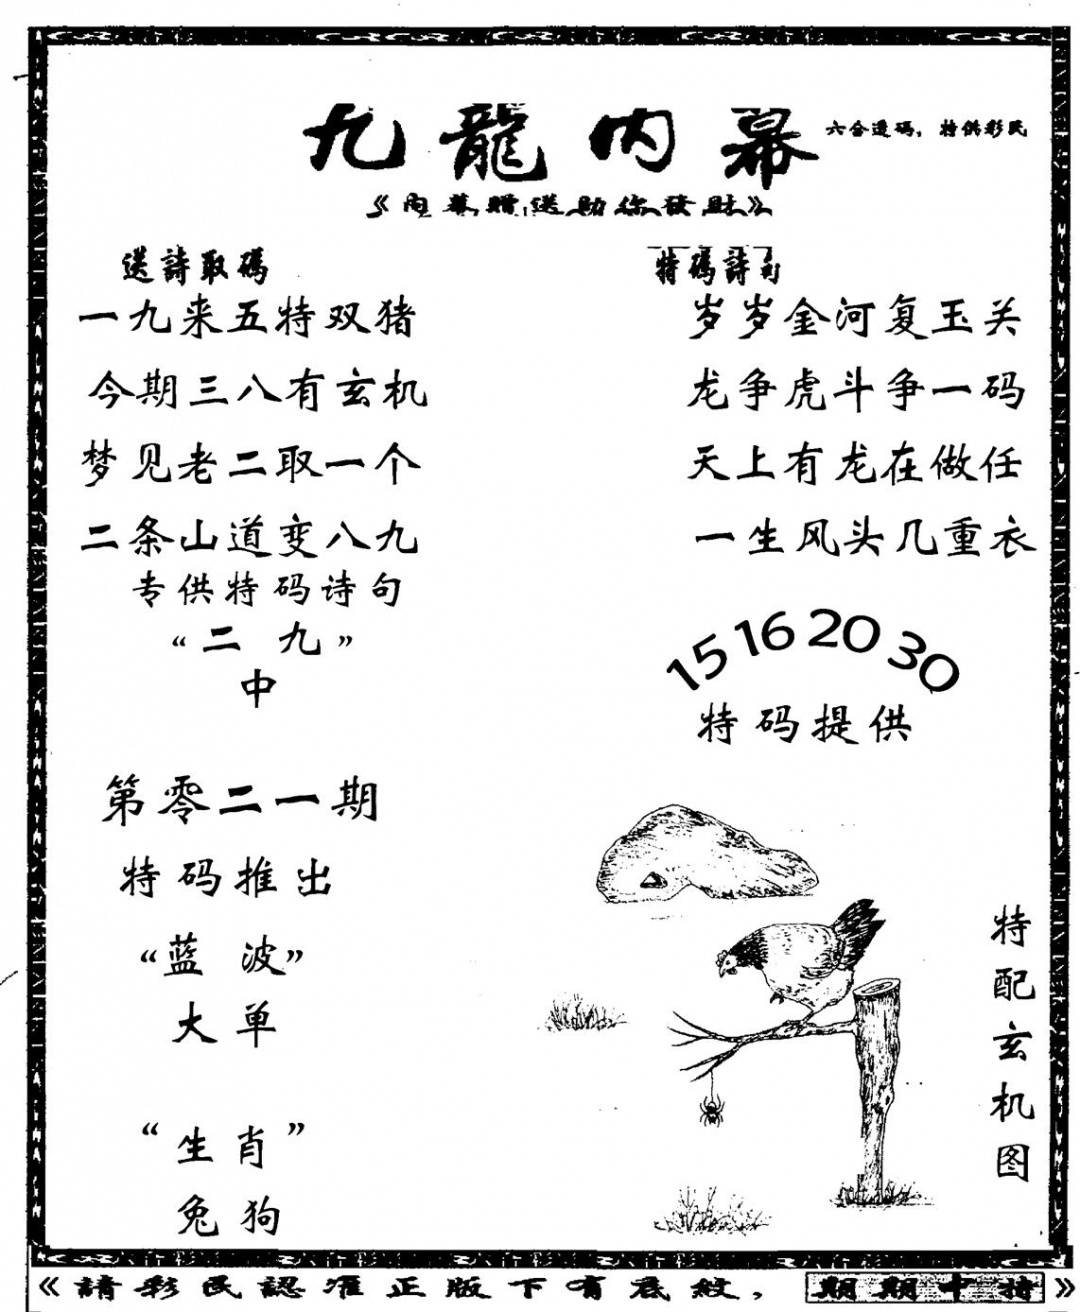 九龍内幕
六合透码，特供彩民
《内幕赠送助你發财》
送詩取碼
一九来五特双猪
今期三八有玄机
梦见老二取一个
二条山道变八九
专供特码诗句
“二 九”
中
第零二一期
特码推出
“蓝 波”
大单
“生肖”
兔狗
特碼詩句
岁岁金河复玉关
龙争虎斗争一码
天上有龙在做任
一生风头几重衣
15 16 20 30
特码提供
特配玄机图
《請彩民認准正版下有底紋，期期中特》